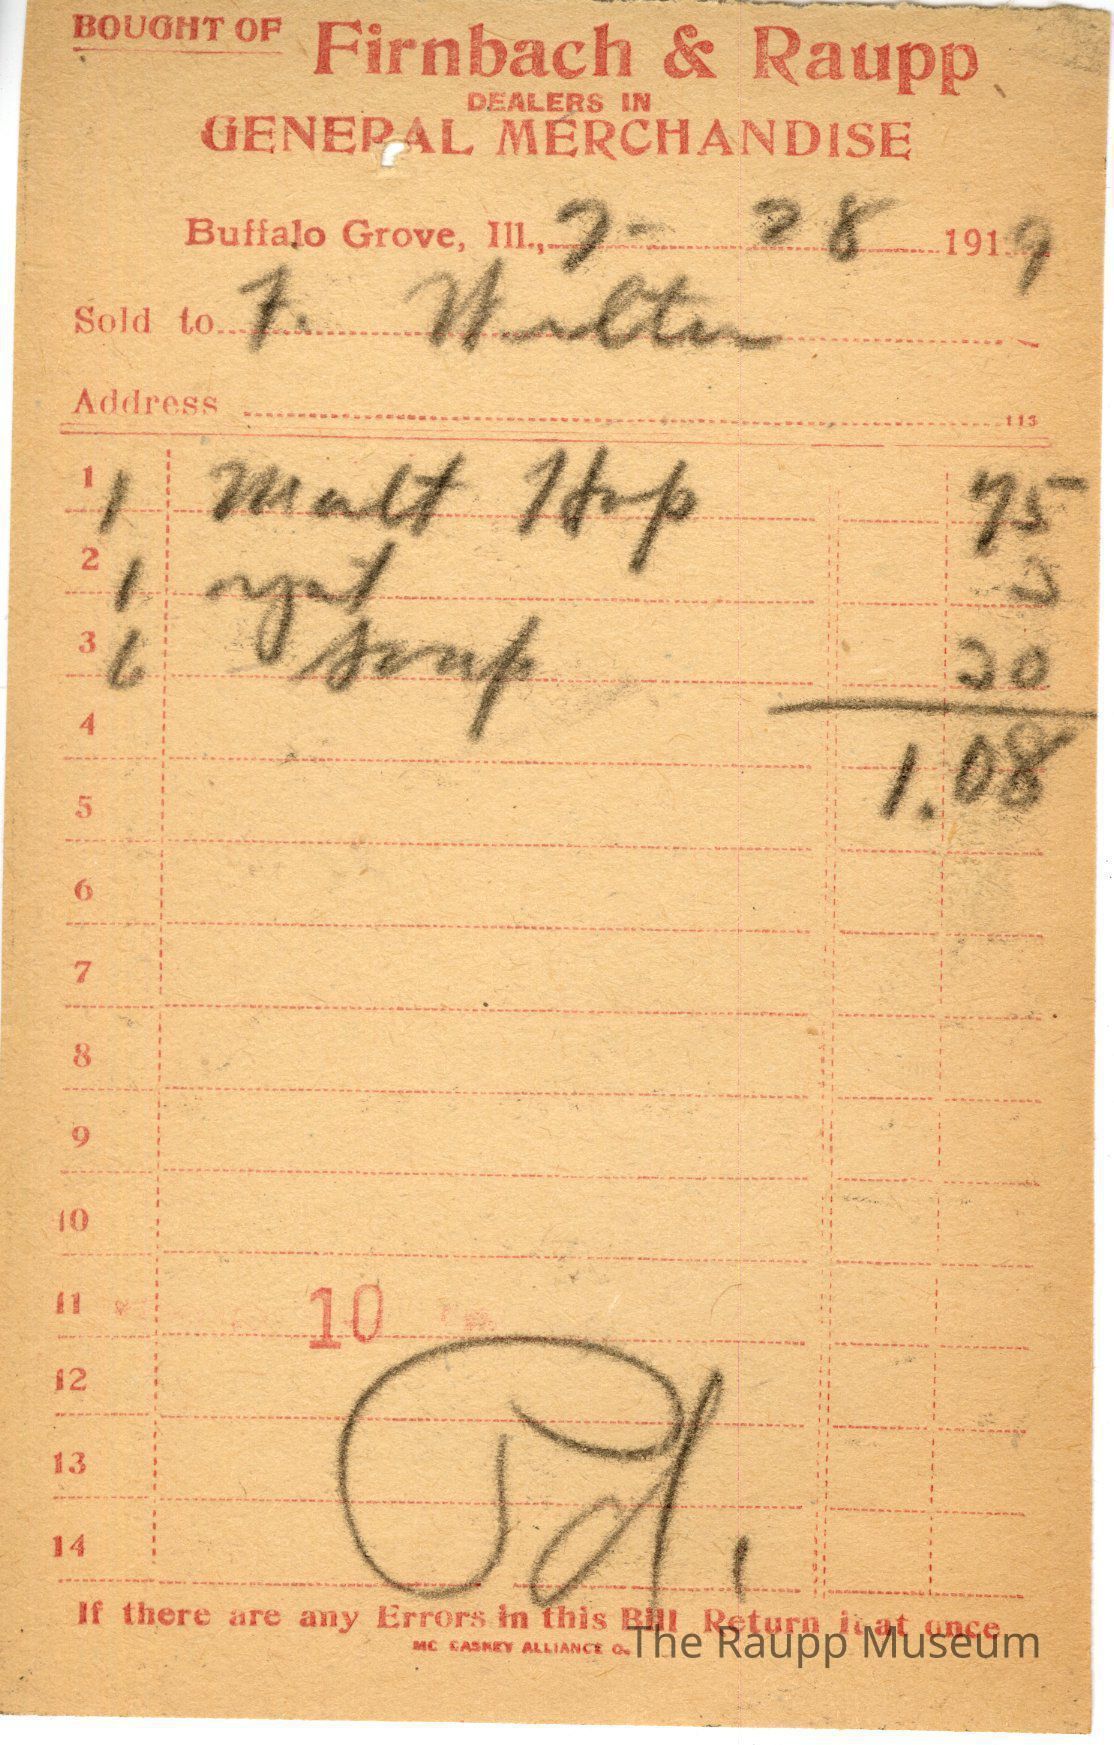 BOUGHT OF Firnbach & Raupp
DEALERS IN
GENERAL MERCHANDISE
Buffalo Grove, Ill., 7- 28 1919
Sold to F.
Address
113
1 1 Malt Hop 75
2 1
3 6 soap 20
4 1.08
5
6
7
8
9
10
11 10
12
13 Pd.
14
If there are any Errors in this Bill Return it at once
MC CASKEY ALLIANCE O.
The Raupp Museum